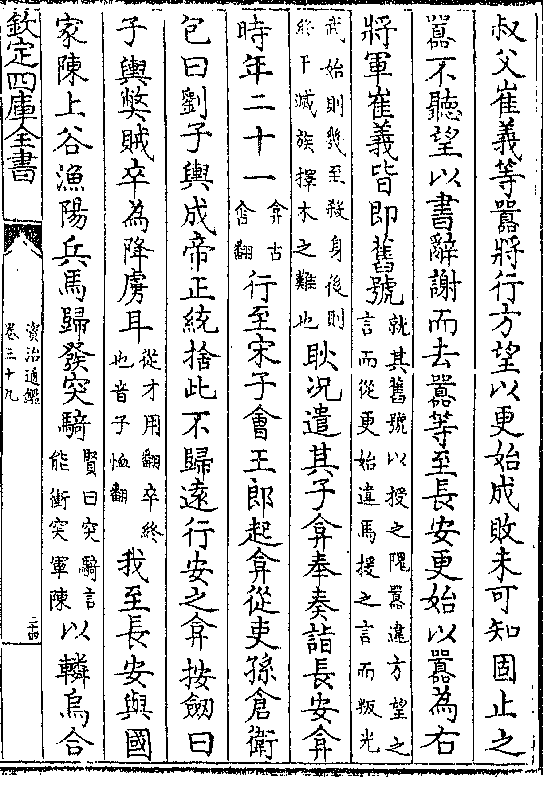 叔父崔義等囂將行方望以更始成敗未可知固止之
囂不聽望以書辭謝而去囂等至長安更始以囂為右
將軍崔義皆即舊號就其舊號以授之隗囂違方望之言而從更始違馬援之言而叛光
武始則幾至殺身後則終于滅族擇木之難也耿况遣其子弇奉奏詣長安弇
時年二十一弇古含翻行至宋子會王郎起弇從吏孫倉衛
包曰劉子輿成帝正統捨此不歸遠行安之弇按劒曰
子輿獘賊卒為降虜耳從才用翻卒終也音子恤翻我至長安與國
家陳上谷漁陽兵馬歸發突騎賢曰突騎言能衝突軍陳以轔烏合
欽定四庫全書
資治通鑑
卷三十九